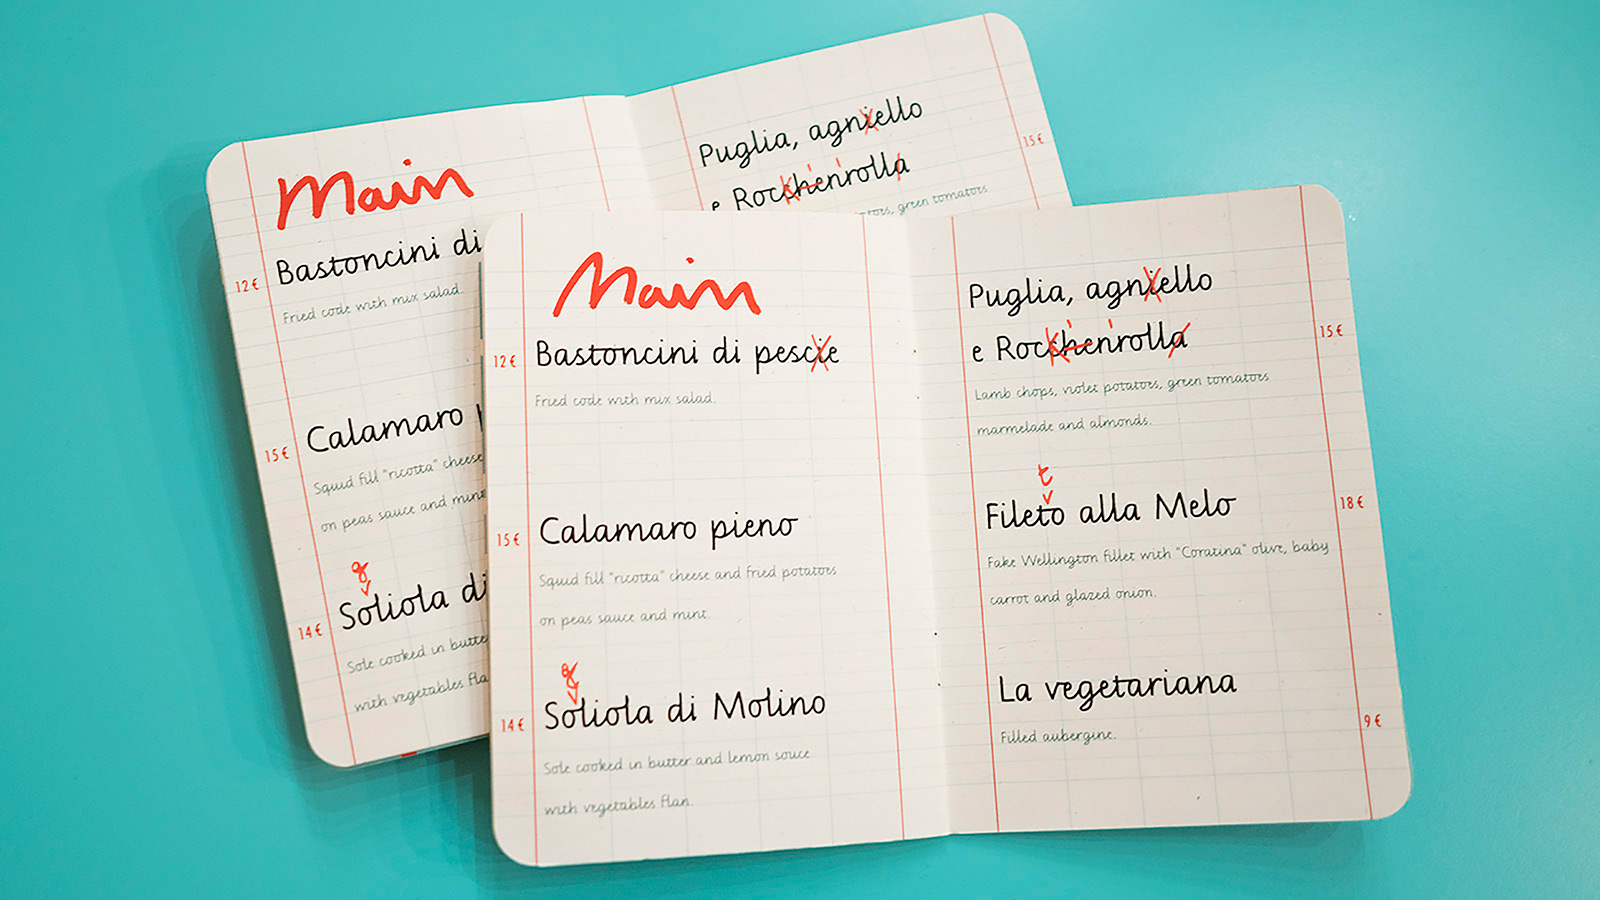 Main
Puglia, agniello
15€
e Rockhenrolla
green tomatoes
Bastoncini di
12€
Fried code with mix salad.
Calamaro
15€
Squid fill "ricotta" cheese
on peas sauce and mint
g
Soliola di
14€
Sole cooked in butter
with vegetables fla
Main
12€ Bastoncini di pescie
Fried code with mix salad.
15€ Calamaro pieno
Squid fill "ricotta" cheese and fried potatoes
on peas sauce and mint.
g
14€ Soliola di Molino
Sole cooked in butter and lemon souce
with vegetables flan.
Puglia, agniello
e Rockhenrolla 15€
Lamb chops, violet potatoes, green tomatoes
marmelade and almonds.
t
Fileto alla Melo 18€
Fake Wellington fillet with "Coratina" olive, baby
carrot and glazed onion.
La vegetariana
9€
Filled aubergine.